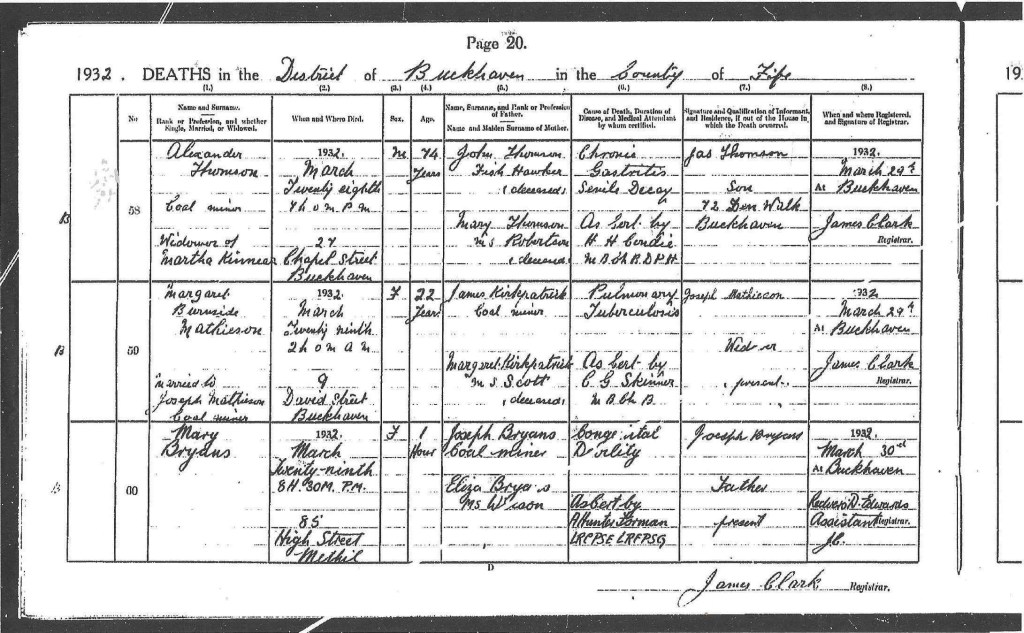 Page 20.
1932. DEATHS in the District of Buckhaven in the County of Fife
19
(1.) (2.) (3.) (4.) (5.) (6.) (7.) (8.)
No
Name and Surname.
Rank or Profession, and whether
Single, Married, or Widowed.
When and Where Died.
Sex.
Age.
Name, Surname, and Rank or Profession
of Father.
Name and Maiden Surname of Mother.
Cause of Death, Duration of
Disease, and Medical Attendant
by whom certified.
Signature and Qualification of Informant,
and Residence, if out of the House in
which the Death occurred.
When and where Registered,
and Signature of Registrar.
B
58
Alexander
Thomson
Coal miner
Widower of
Martha Kinnear
1932.
March
Twenty eighth
4 h 0 m P M
27
Chapel Street
Buckhaven
M
74
Years
John Thomson
Fish Hawker
(deceased)
Mary Thomson
M S Robertson
(deceased)
Chronic
Gastritis
Senile Decay
As Cert by
H H Condie
M B Ch B D P H
Jas Thomson
Son
72 Den Walk
Buckhaven
1932.
March 29th
At Buckhaven
James Clark
Registrar.
B
59
Margaret
Burnside
Mathieson
Married to
Joseph Mathieson
Coal miner
1932.
March
Twenty ninth
2 h 0 m A M
9
David Street
Buckhaven
F
22
Years
James Kirkpatrick
Coal miner
Margaret Kirkpatrick
M S Scott
(deceased)
Pulmonary
Tuberculosis
As Cert by
C G Skinner
M B Ch B
Joseph Mathieson
Wid er
(present)
1932.
March 29th
At Buckhaven
James Clark
Registrar.
B
60
Mary
Bryans
1932.
March
Twenty-ninth
8H. 30M. P.M.
85
High Street
Methil
F
1
Hour
Joseph Bryans
Coal miner
Eliza Brya s
MS
Conge ital
De ility
As Cert by
A Hunter Forman
LRFPSE LRFPSG
Joseph Bryans
Father
present
1932.
March 30th
At Buckhaven
Edwards
Assistant Registrar.
J.C.
D
James Clark Registrar.